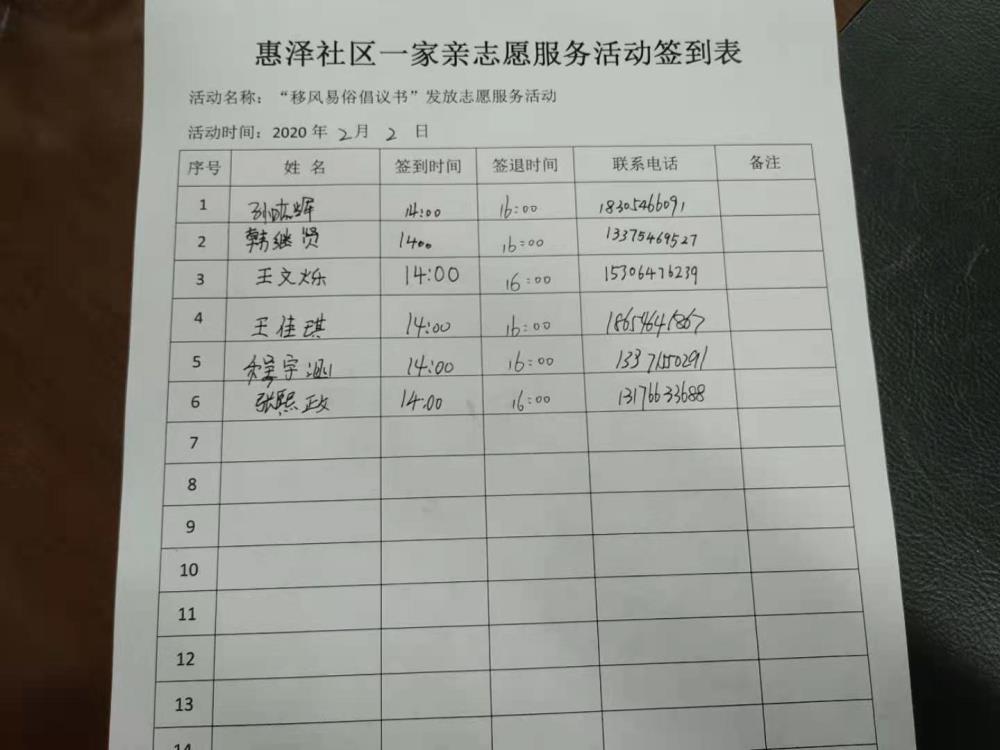 惠泽社区一家亲志愿服务活动签到表
活动名称：“移风易俗倡议书”发放志愿服务活动
活动时间：2020 年 2月 2 日
序号 姓 名 签到时间 签退时间 联系电话 备注
1 14:00 16:00 18305466091
2 韩继贤 1400 16:00 13375469527
3 王文烁 14:00 16:00 15306476239
4 王佳琪 14:00 16:00 18654641867
5 程宇涵 14:00 16:00 13371550291
6 张熙政 14:00 16:00 13176633688
7
8
9
10
11
12
13
14